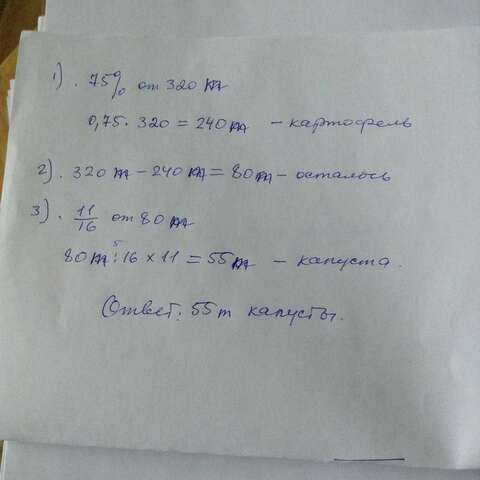 1). 75% от 320 т
0,75 · 320 = 240 т – картофель
2). 320 т – 240 т = 80 т – осталось
3). 11/16 от 80 т
80 т : 16 × 11 = 55 т – капуста.
5
Ответ: 55 т капусты.